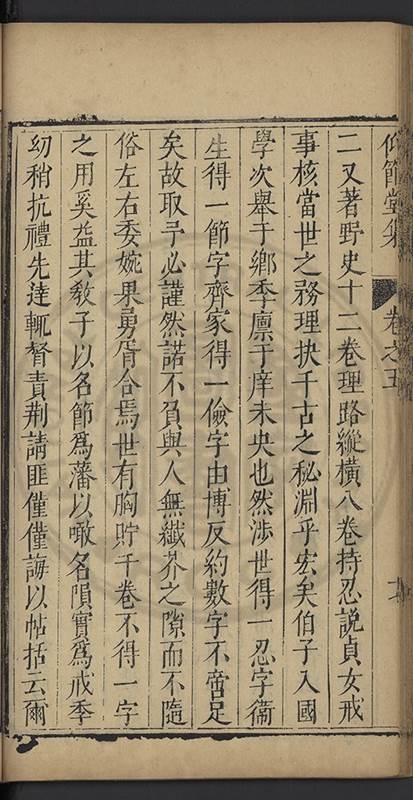 仰節堂集 卷之五
二又著野史十二卷理路縱橫八卷持忍說貞女戒
事核當世之務理抉千古之秘淵乎宏矣伯子入國
學次舉于鄉季廪于庠未央也然涉世得一忍字衞
生得一節字齊家得一儉字由博反約數字不啻足
矣故取予必謹然諾不負與人無纖芥之隙而不隨
俗左右委婉果勇胥合焉世有胸貯千卷不得一字
之用奚益其敎子以名節爲藩以噉名隕實爲戒季
㓜稍抗禮先達輒督責荆請匪僅僅誨以帖括云爾